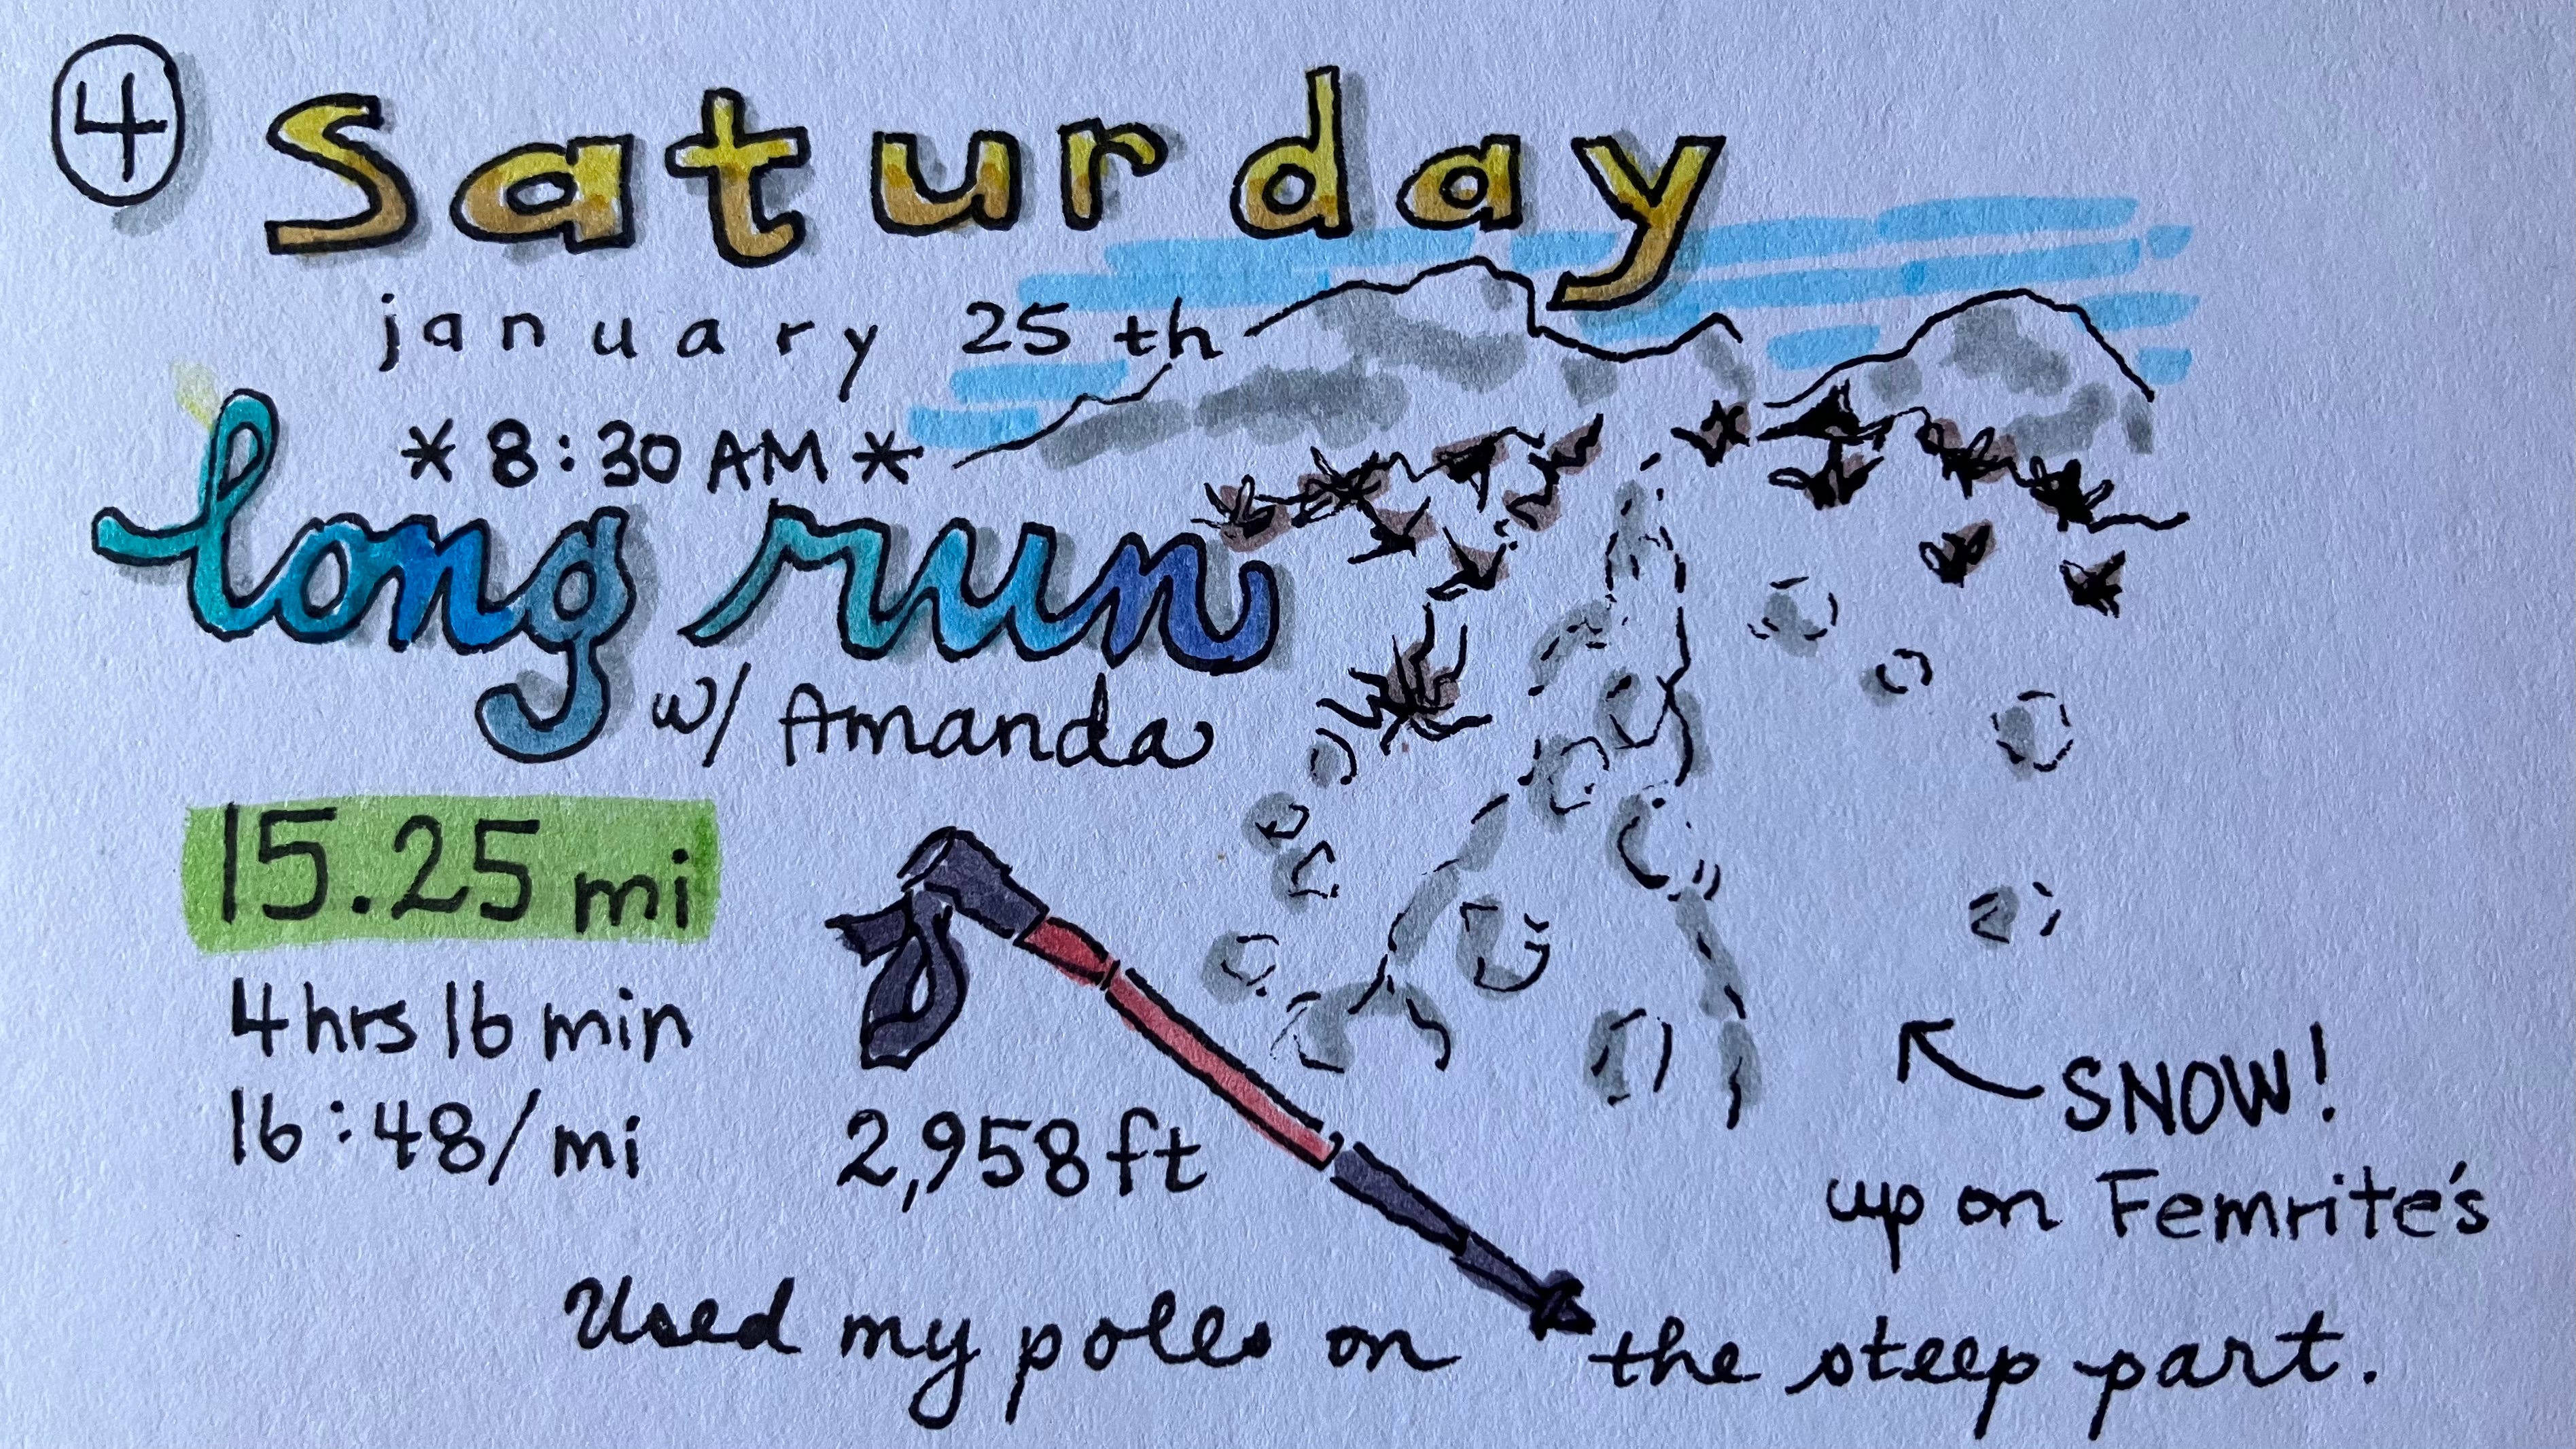 4
Saturday
january 25th
*8:30 AM*
long run
w/ Amanda
15.25 mi
4hrs 16 min
16:48/mi
2,958 ft
SNOW!
up on Femrite's
Used my poles on the steep part.